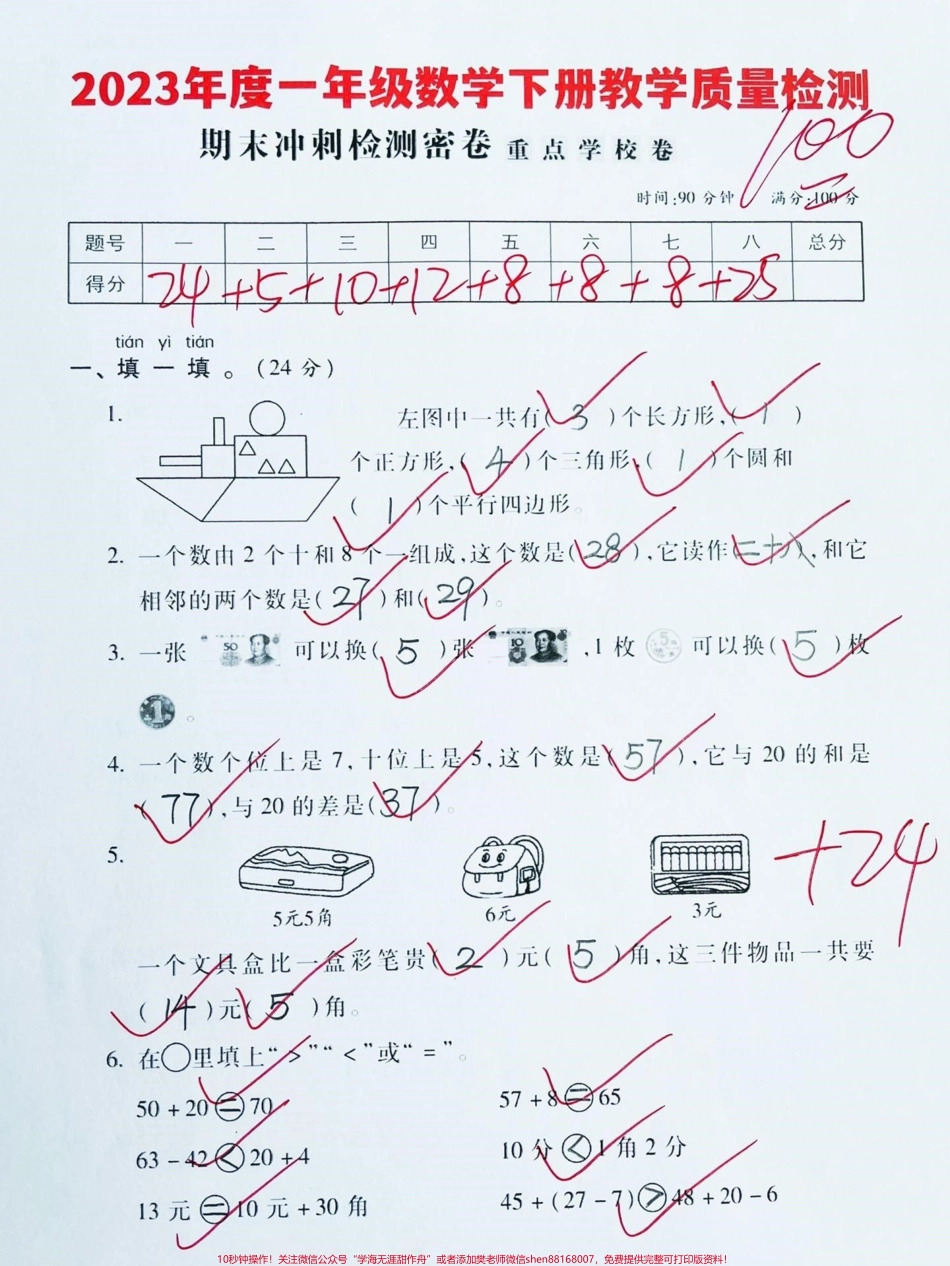 2023年度一年级数学下册教学质量检测
期末冲刺检测密卷 重点学校卷
100
时间:90分钟 满分:100分
题号 一 二 三 四 五 六 七 八 总分
得分 24 +5 +10 +12 +8 +8 +8 +25
tián yì tián
一、填一填。(24分)
1. 左图中一共有( 3 )个长方形,( 1 )
个正方形,( 4 )个三角形,( 1 )个圆和
( 1 )个平行四边形。
2. 一个数由2个十和8个一组成,这个数是( 28 ),它读作(二十八),和它
相邻的两个数是( 27 )和( 29 )。
3. 一张 50 可以换( 5 )张 10 ,1枚 5 可以换( 5 )枚
1 。
4. 一个数个位上是7,十位上是5,这个数是( 57 ),它与20的和是
( 77 ),与20的差是( 37 )。
5.
+24
5元5角 6元 3元
一个文具盒比一盒彩笔贵( 2 )元( 5 )角,这三件物品一共要
( 14 )元( 5 )角。
6. 在○里填上“>”“<”或“=”。
50+20=70 57+8=65
63-42<20+4 10分<1角2分
13元=10元+30角 45+(27-7)>48+20-6
10秒钟操作！关注微信公众号“学海无涯甜作舟”或者添加樊老师微信shen88168007，免费提供完整可打印版资料！